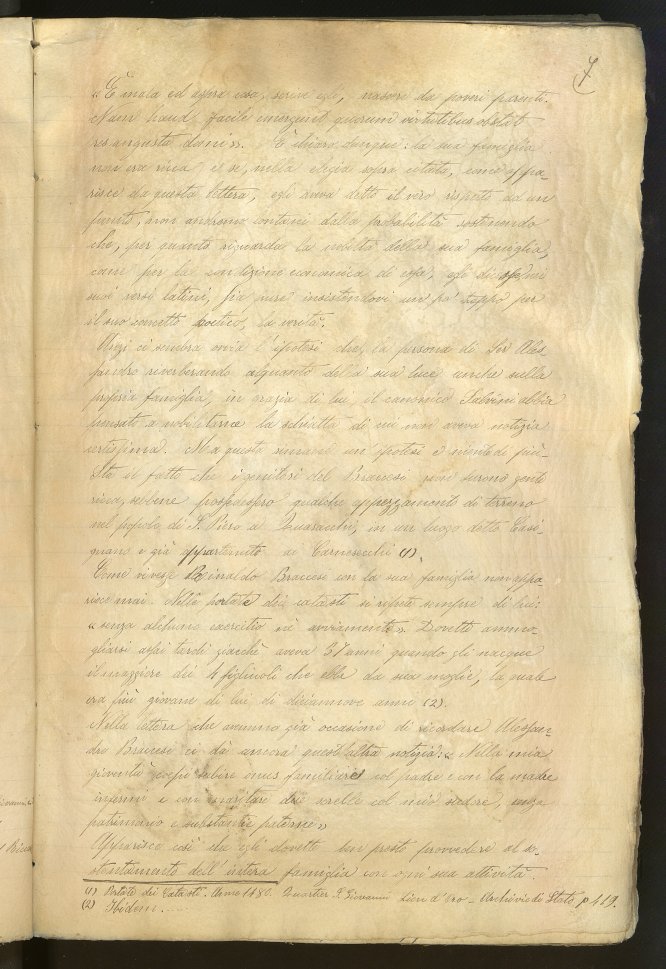 7
« È mala ed aspra cosa, scrive egli, nascere da poveri parenti.
Nam haud facile emergunt quorum virtutibus obstat
res angusta domi ». È chiaro dunque: la sua famiglia
non era ricca e se, nella elegia sopra citata, come appa-
risce da questa lettera, egli aveva detto il vero rispetto ad un
punto, non andremo lontani dalla probabilità sostenendo
che, per quanto riguarda la nobiltà della sua famiglia,
come per la condizione economica di essa, egli di
suoi versi latini, sia pure insistendovi un po' troppo per
il suo concetto poetico, la verità.
Anzi ci sembra ovvia l'ipotesi che, la persona di Ser Ales-
sandro riverberando alquanto della sua luce anche sulla
propria famiglia, in grazia di lui, il canonico Salvini abbia
pensato a nobilitarne la schiatta di cui non aveva notizia
certissima. Ma questa rimane un ipotesi e niente di più:
Sta il fatto che i genitori del Braccesi non furono gente
ricca, sebbene possedessero qualche appezzamento di terreno
nel popolo di S. Piero a Quaracchi, in un luogo detto
e già appartenuto ai Carnesecchi (1).
Come vivesse Rinaldo Braccesi con la sua famiglia non appa-
risce mai. Nelle portate dei catasti si ripete sempre di lui:
« senza alcuno exercitio nè aviamento ». Dovette ammo-
gliarsi assai tardi giacchè aveva 57 anni quando gli nacque
il maggiore dei 4 figliuoli che ebbe da sua moglie, la quale
era più giovane di lui di diciannove anni (2).
Nella lettera che avemmo già occasione di ricordare Alessan-
dro Braccesi ci dà ancora quest'altra notizia: « Nella mia
gioventù subire onus familiare col padre e con la madre
infermi e con maritare due sorelle col mio sudore, senza
patrimonio e substantie paterne »
Apparisce così che egli dovette ben presto provvedere al so-
stentamento dell'intera famiglia con ogni sua attività.
(1) Portate dei Catasti. Anno 1480. Quartier S. Giovanni Lion d'Oro - Archivio di Stato p 419.
(2) Ibidem